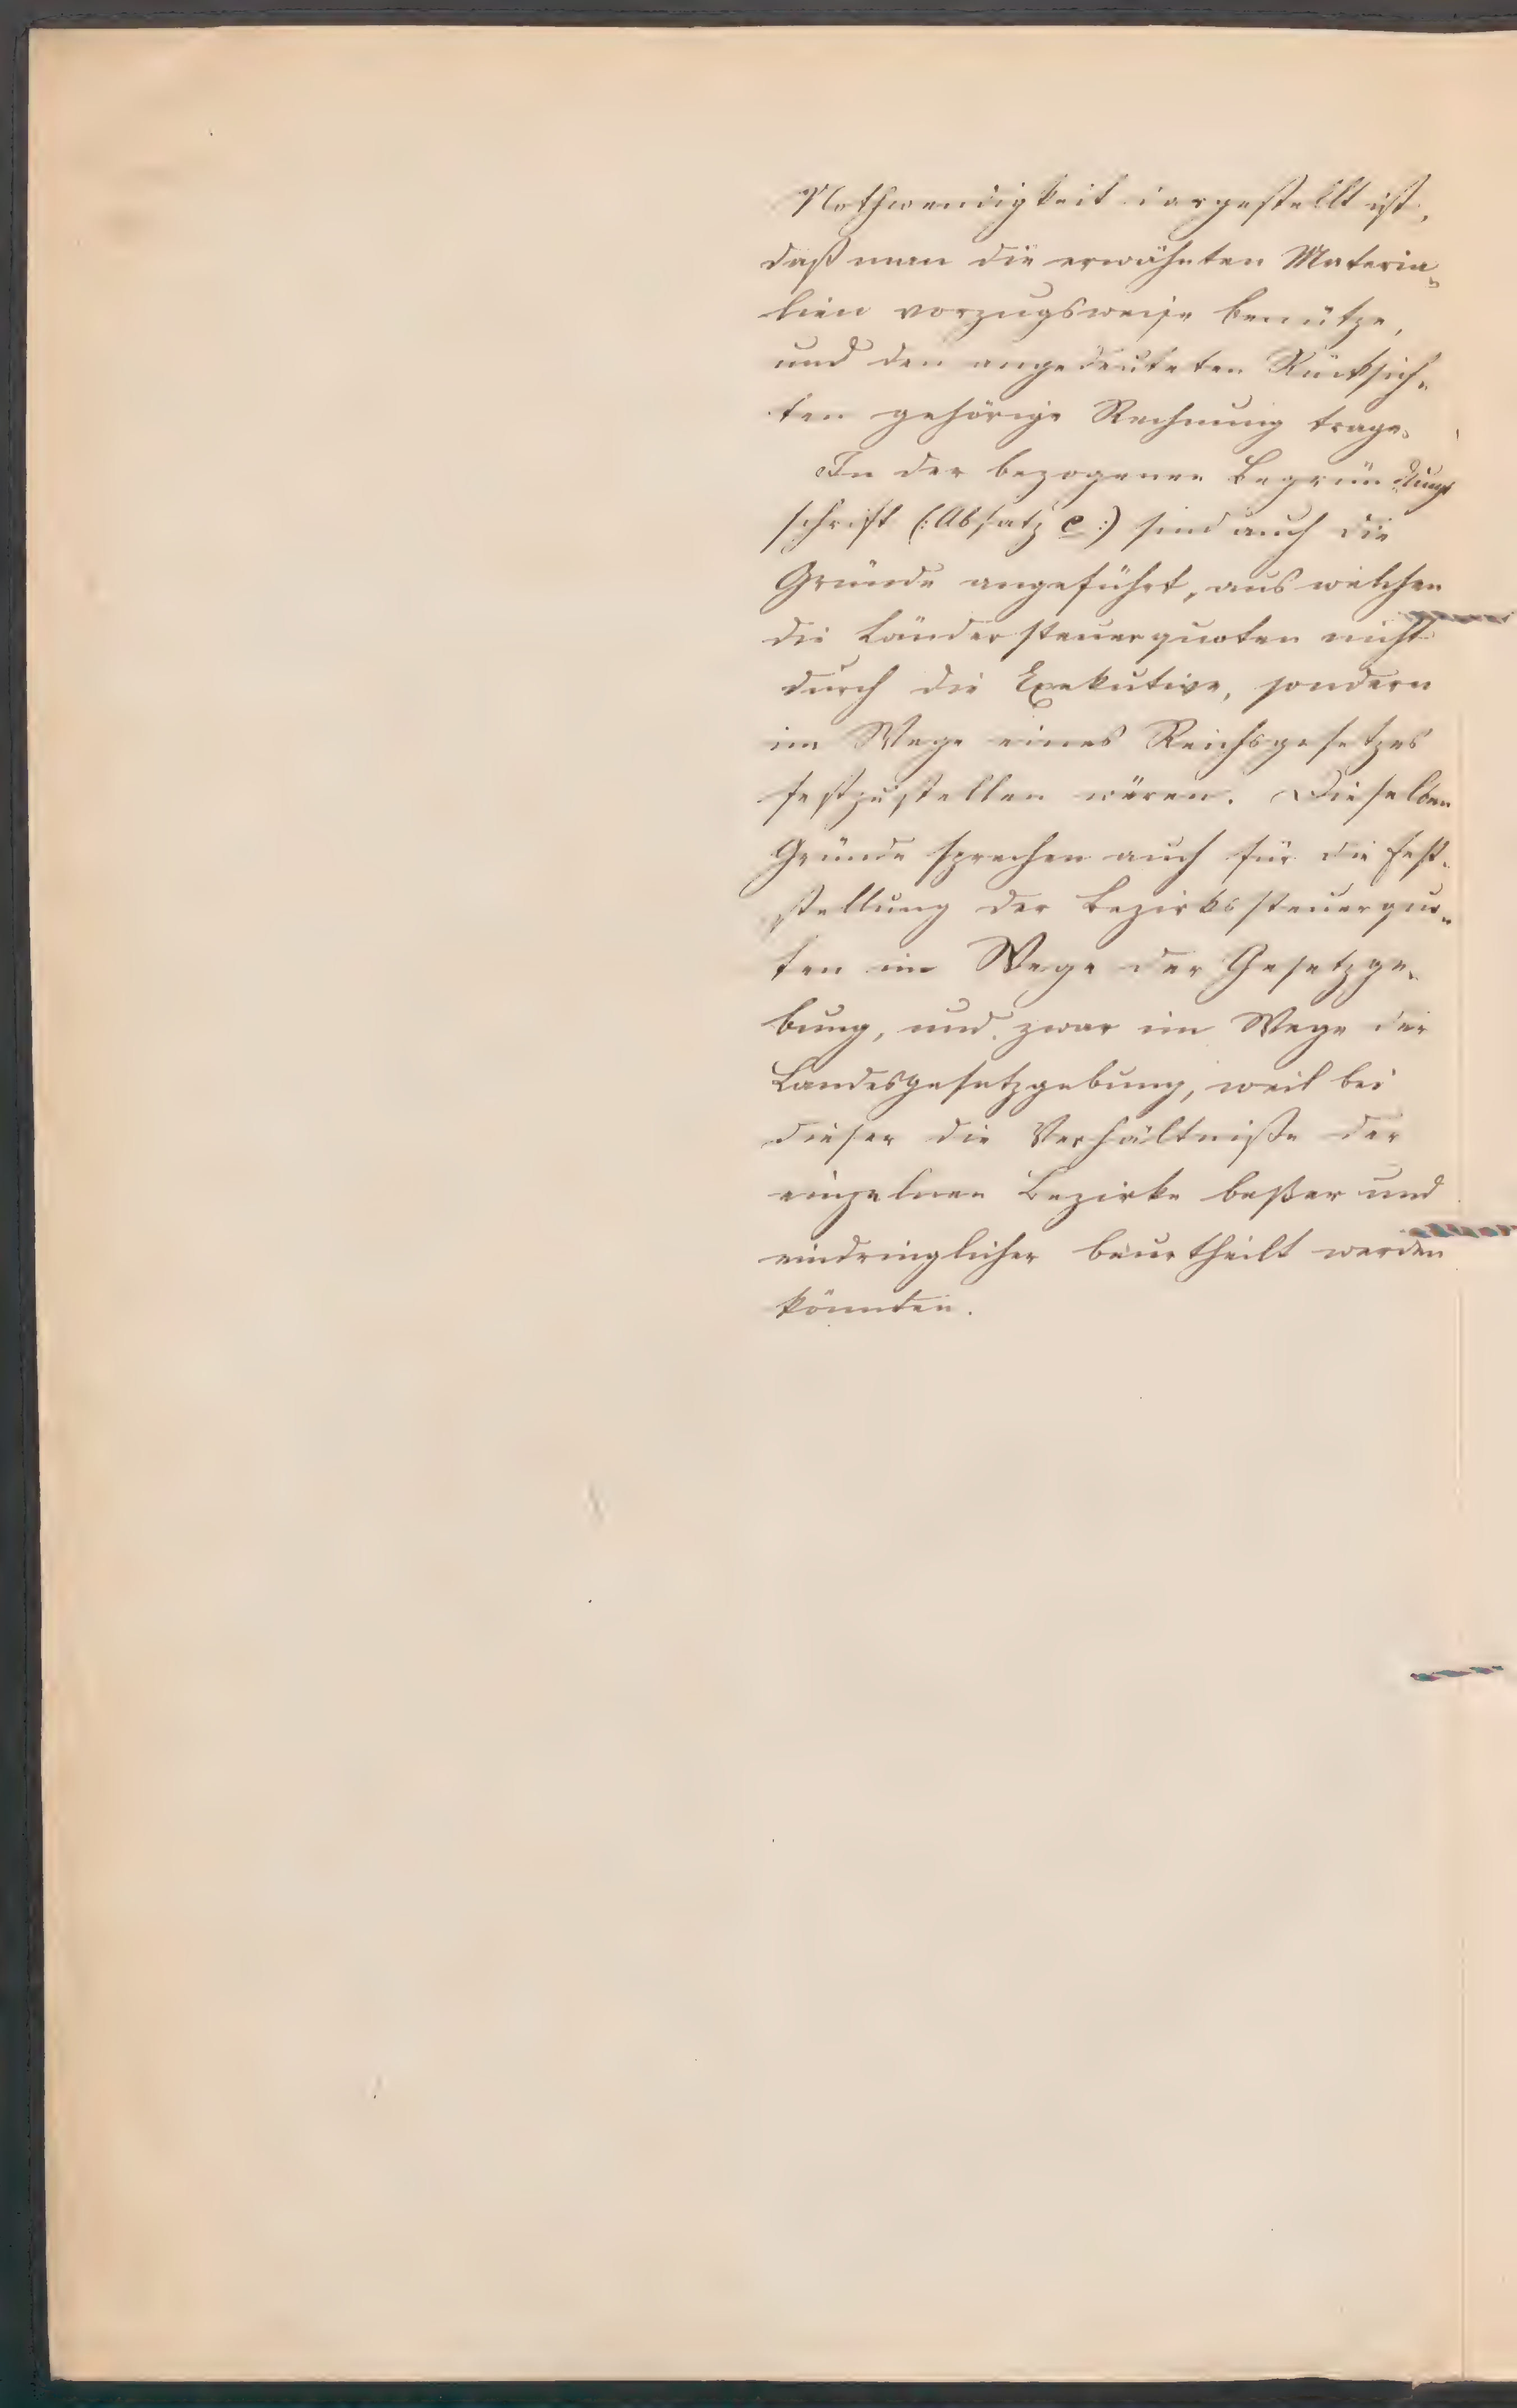 Nothwendigkeit dargestellt ist,
daß man die erwähnten Materia„
lien vorzugsweise benütze,
und den angedeuteten Rücksich„
ten gehörige Rechnung trage.
In der bezogenen Begründungs
schrift (:Absatz e:) sind auch die
Gründe angeführt, aus welchen
die Ländersteuerquoten nicht
durch die Exekutive, sondern
im Wege eines Reichsgesetzes
festzustellen wären. Dieselben
Gründe sprechen auch für die Fest„
stellung der Bezirkssteuerquo„
ten im Wege der Gesetzge„
bung, und zwar im Wege der
Landesgesetzgebung, weil bei
dieser die Verhältniße der
einzelnen Bezirke beßer und
eindringlicher beurtheilt werden
könnten.